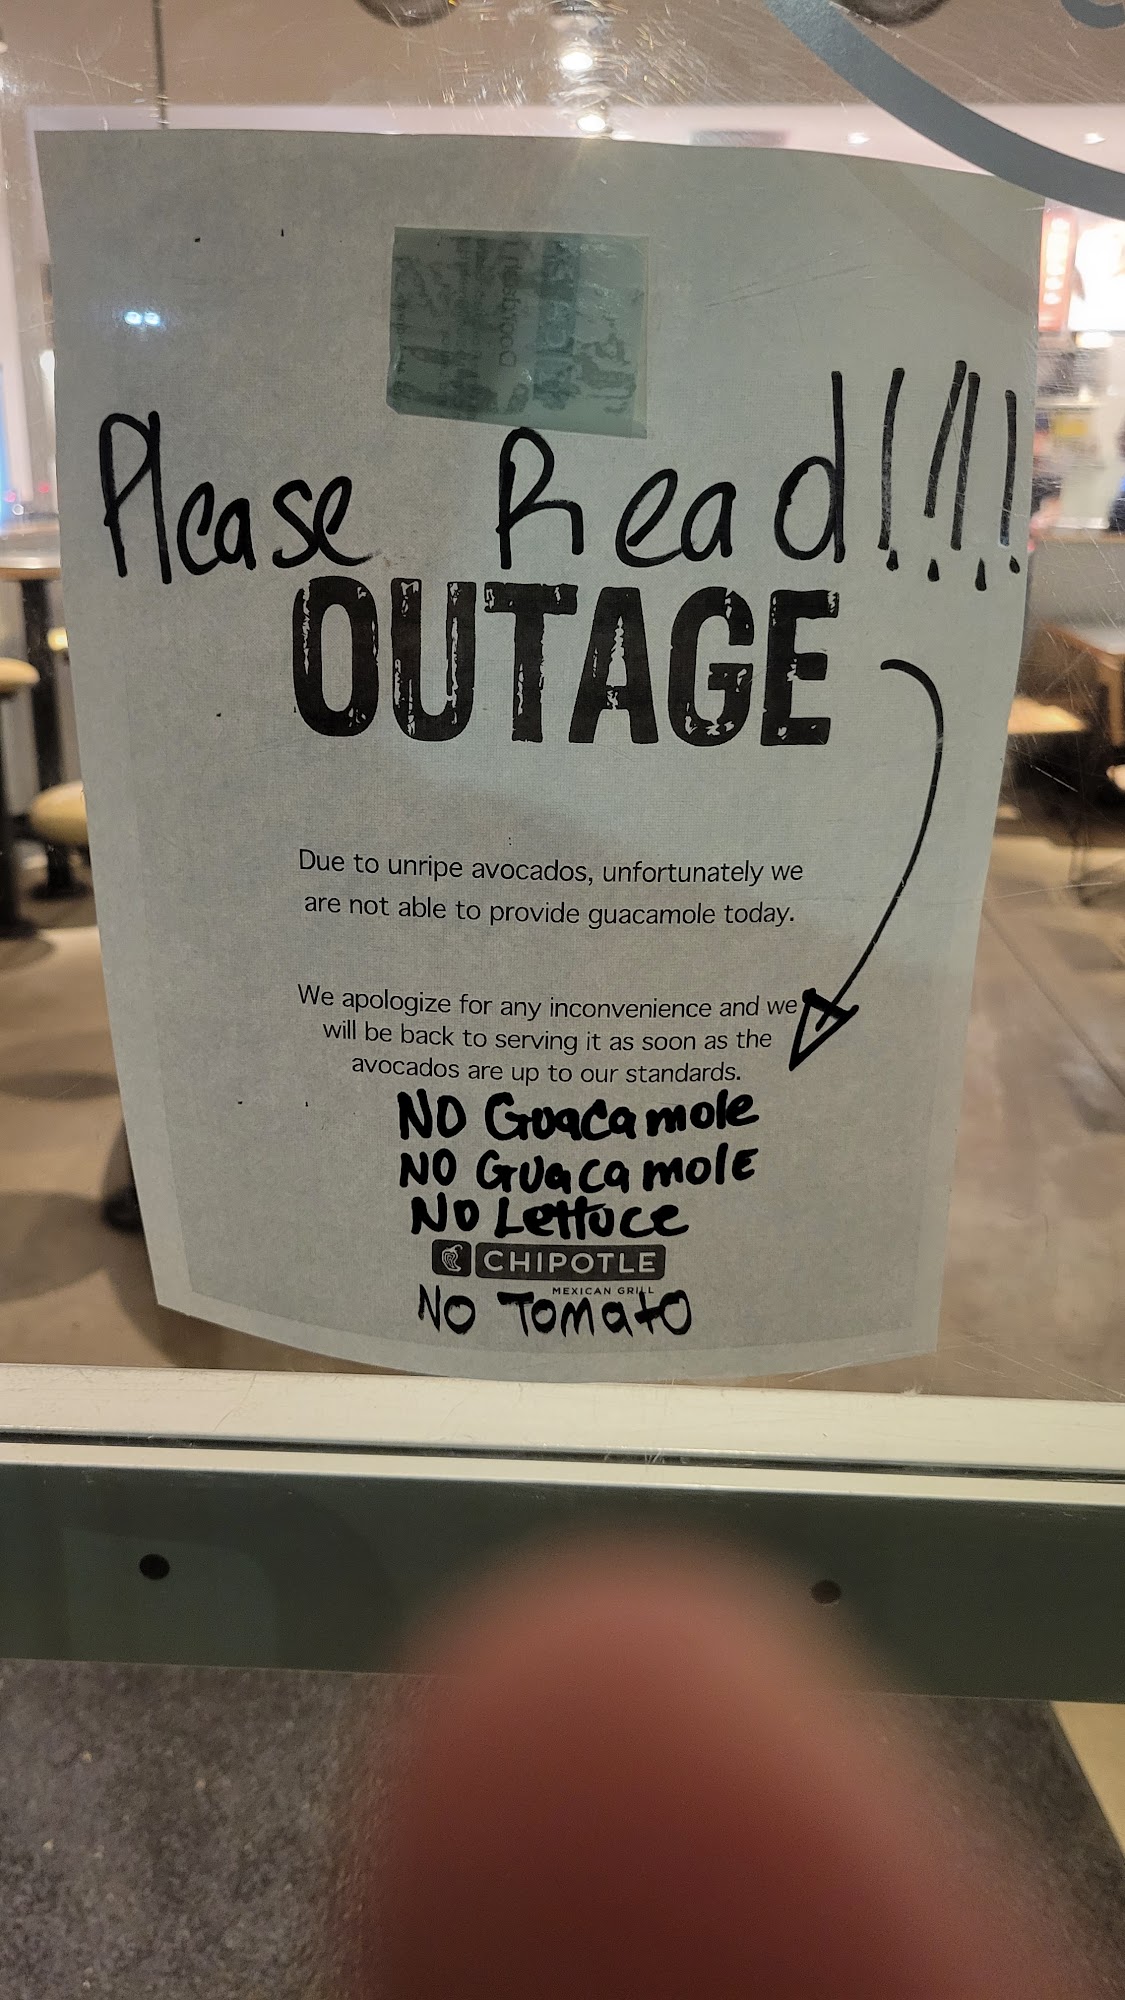 Please Read!!!!
OUTAGE
Due to unripe avocados, unfortunately we
are not able to provide guacamole today.
We apologize for any inconvenience and we
will be back to serving it as soon as the
avocados are up to our standards.
NO Guacamole
NO GUacamolE
NO LettucE
CHIPOTLE
MEXICAN GRILL
NO Tomato